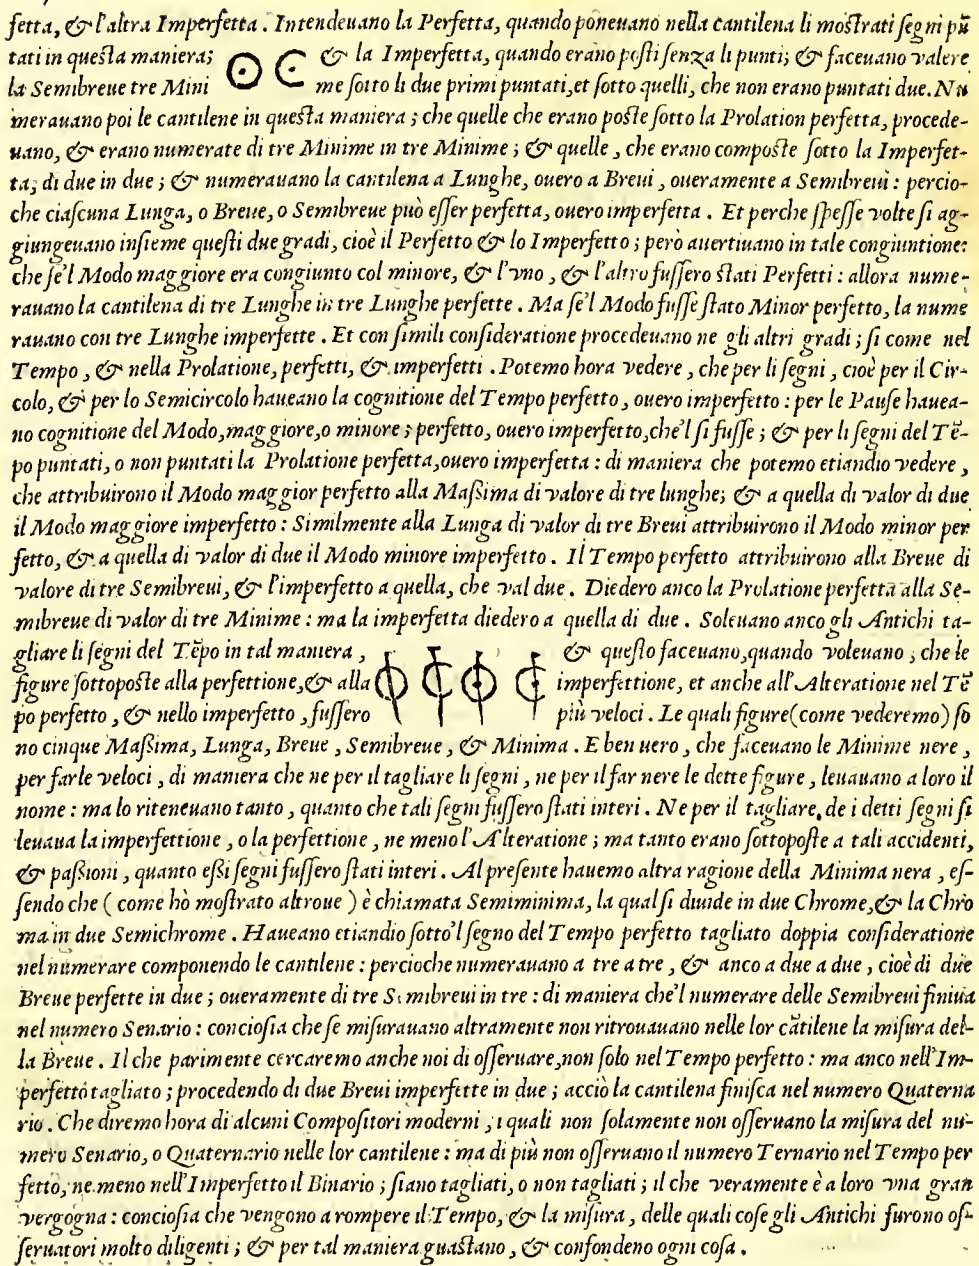 fetta, & l'altra Imperfetta. Intendeuano la Perfetta, quando poneuano nella cantilena li mostrati segni pũ
tati in questa maniera; & la Imperfetta, quando erano posti senza li punti; & faceuano valere
la Semibreue tre Mini me sotto li due primi puntati, et sotto quelli, che non erano puntati due. Nu
merauano poi le cantilene in questa maniera; che quelle che erano poste sotto la Prolation perfetta, procede-
uano, & erano numerate di tre Minime in tre Minime; & quelle, che erano composte sotto la Imperfet-
ta; di due in due; & numerauano la cantilena a Lunghe, ouero a Breui, oueramente a Semibreui: percio-
che ciascuna Lunga, o Breue, o Semibreue può esser perfetta, ouero imperfetta. Et perche spesse volte si ag-
giungeuano insieme questi due gradi, cioè il Perfetto & lo Imperfetto; però auertiuano in tale congiuntione:
che se'l Modo maggiore era congiunto col minore, & l'vno, & l'altro fussero stati Perfetti: allora nume-
rauano la cantilena di tre Lunghe in tre Lunghe perfette. Ma se'l Modo fusse stato Minor perfetto, la nume
rauano con tre Lunghe imperfette. Et con simili consideratione procedeuano ne gli altri gradi; si come nel
Tempo, & nella Prolatione, perfetti, & imperfetti. Potemo hora vedere, che per li segni, cioè per il Cir-
colo, & per lo Semicircolo haueano la cognitione del Tempo perfetto, ouero imperfetto: per le Pause hauea-
no cognitione del Modo, maggiore, o minore; perfetto, ouero imperfetto, che'l si fusse; & per li segni del Tẽ-
po puntati, o non puntati la Prolatione perfetta, ouero imperfetta: di maniera che potemo etiandio vedere,
che attribuirono il Modo maggior perfetto alla Massima di valore di tre lunghe; & a quella di valor di due
il Modo maggiore imperfetto: Similmente alla Lunga di valor di tre Breui attribuirono il Modo minor per
fetto, & a quella di valor di due il Modo minore imperfetto. Il Tempo perfetto attribuirono alla Breue di
valore di tre Semibreui, & l'imperfetto a quella, che val due. Diedero anco la Prolatione perfetta alla Se-
mibreue di valor di tre Minime: ma la imperfetta diedero a quella di due. Soleuano anco gli Antichi ta-
gliare li segni del Tẽpo in tal maniera, & questo faceuano, quando voleuano, che le
figure sottoposte alla perfettione, & alla imperfettione, et anche all'Alteratione nel Tẽ
po perfetto, & nello imperfetto, fussero più veloci. Le quali figure (come vederemo) so
no cinque Massima, Lunga, Breue, Semibreue, & Minima. E ben uero, che faceuano le Minime nere,
per farle veloci, di maniera che ne per il tagliare li segni, ne per il far nere le dette figure, leuauano a loro il
nome: ma lo riteneuano tanto, quanto che tali segni fussero stati interi. Ne per il tagliare, de i detti segni si
leuaua la imperfettione, o la perfettione, ne meno l'Alteratione; ma tanto erano sottoposte a tali accidenti,
& passioni, quanto essi segni fussero stati interi. Al presente hauemo altra ragione della Minima nera, es-
sendo che (come hò mostrato altroue) è chiamata Semiminima, la qual si diuide in due Chrome, & la Chro
ma in due Semichrome. Haueano etiandio sotto'l segno del Tempo perfetto tagliato doppia consideratione
nel numerare componendo le cantilene: percioche numerauano a tre a tre, & anco a due a due, cioè di due
Breue perfette in due; oueramente di tre Semibreui in tre: di maniera che'l numerare delle Semibreui finiua
nel numero Senario: conciosia che se misurauano altramente non ritrouauano nelle lor cãtilene la misura del-
la Breue. Il che parimente cercaremo anche noi di osseruare, non solo nel Tempo perfetto: ma anco nell'Im-
perfetto tagliato; procedendo di due Breui imperfette in due; acciò la cantilena finisca nel numero Quaterna
rio. Che diremo hora di alcuni Compositori moderni, i quali non solamente non osseruano la misura del nu-
mero Senario, o Quaternario nelle lor cantilene: ma di più non osseruano il numero Ternario nel Tempo per
fetto, ne meno nell'Imperfetto il Binario; siano tagliati, o non tagliati; il che veramente è a loro vna gran
vergogna: conciosia che vengono a rompere il Tempo, & la misura, delle quali cose gli Antichi furono os-
seruatori molto diligenti; & per tal maniera guastano, & confondeno ogni cosa.